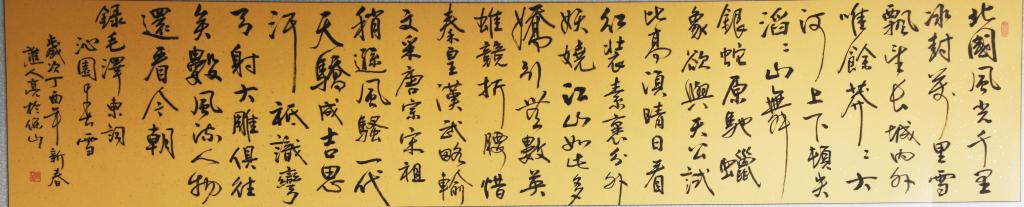 北國風光千里
冰封萬里雪
飄望長城內外
唯餘莽〻大
河上下頓失
滔〻山舞
銀蛇原馳蠟
象欲與天公試
比高須晴日看
紅裝素裹分外
妖嬈江山如此多
嬌引無數英
雄競折腰惜
秦皇漢武略輸
文采唐宗宋祖
稍遜風騷一代
天驕成吉思
汗祇識彎
弓射大雕俱往
矣數風流人物
還看今朝
錄毛澤東詞
沁園春雪
歲次丁酉年新春
譙人亮於佩山